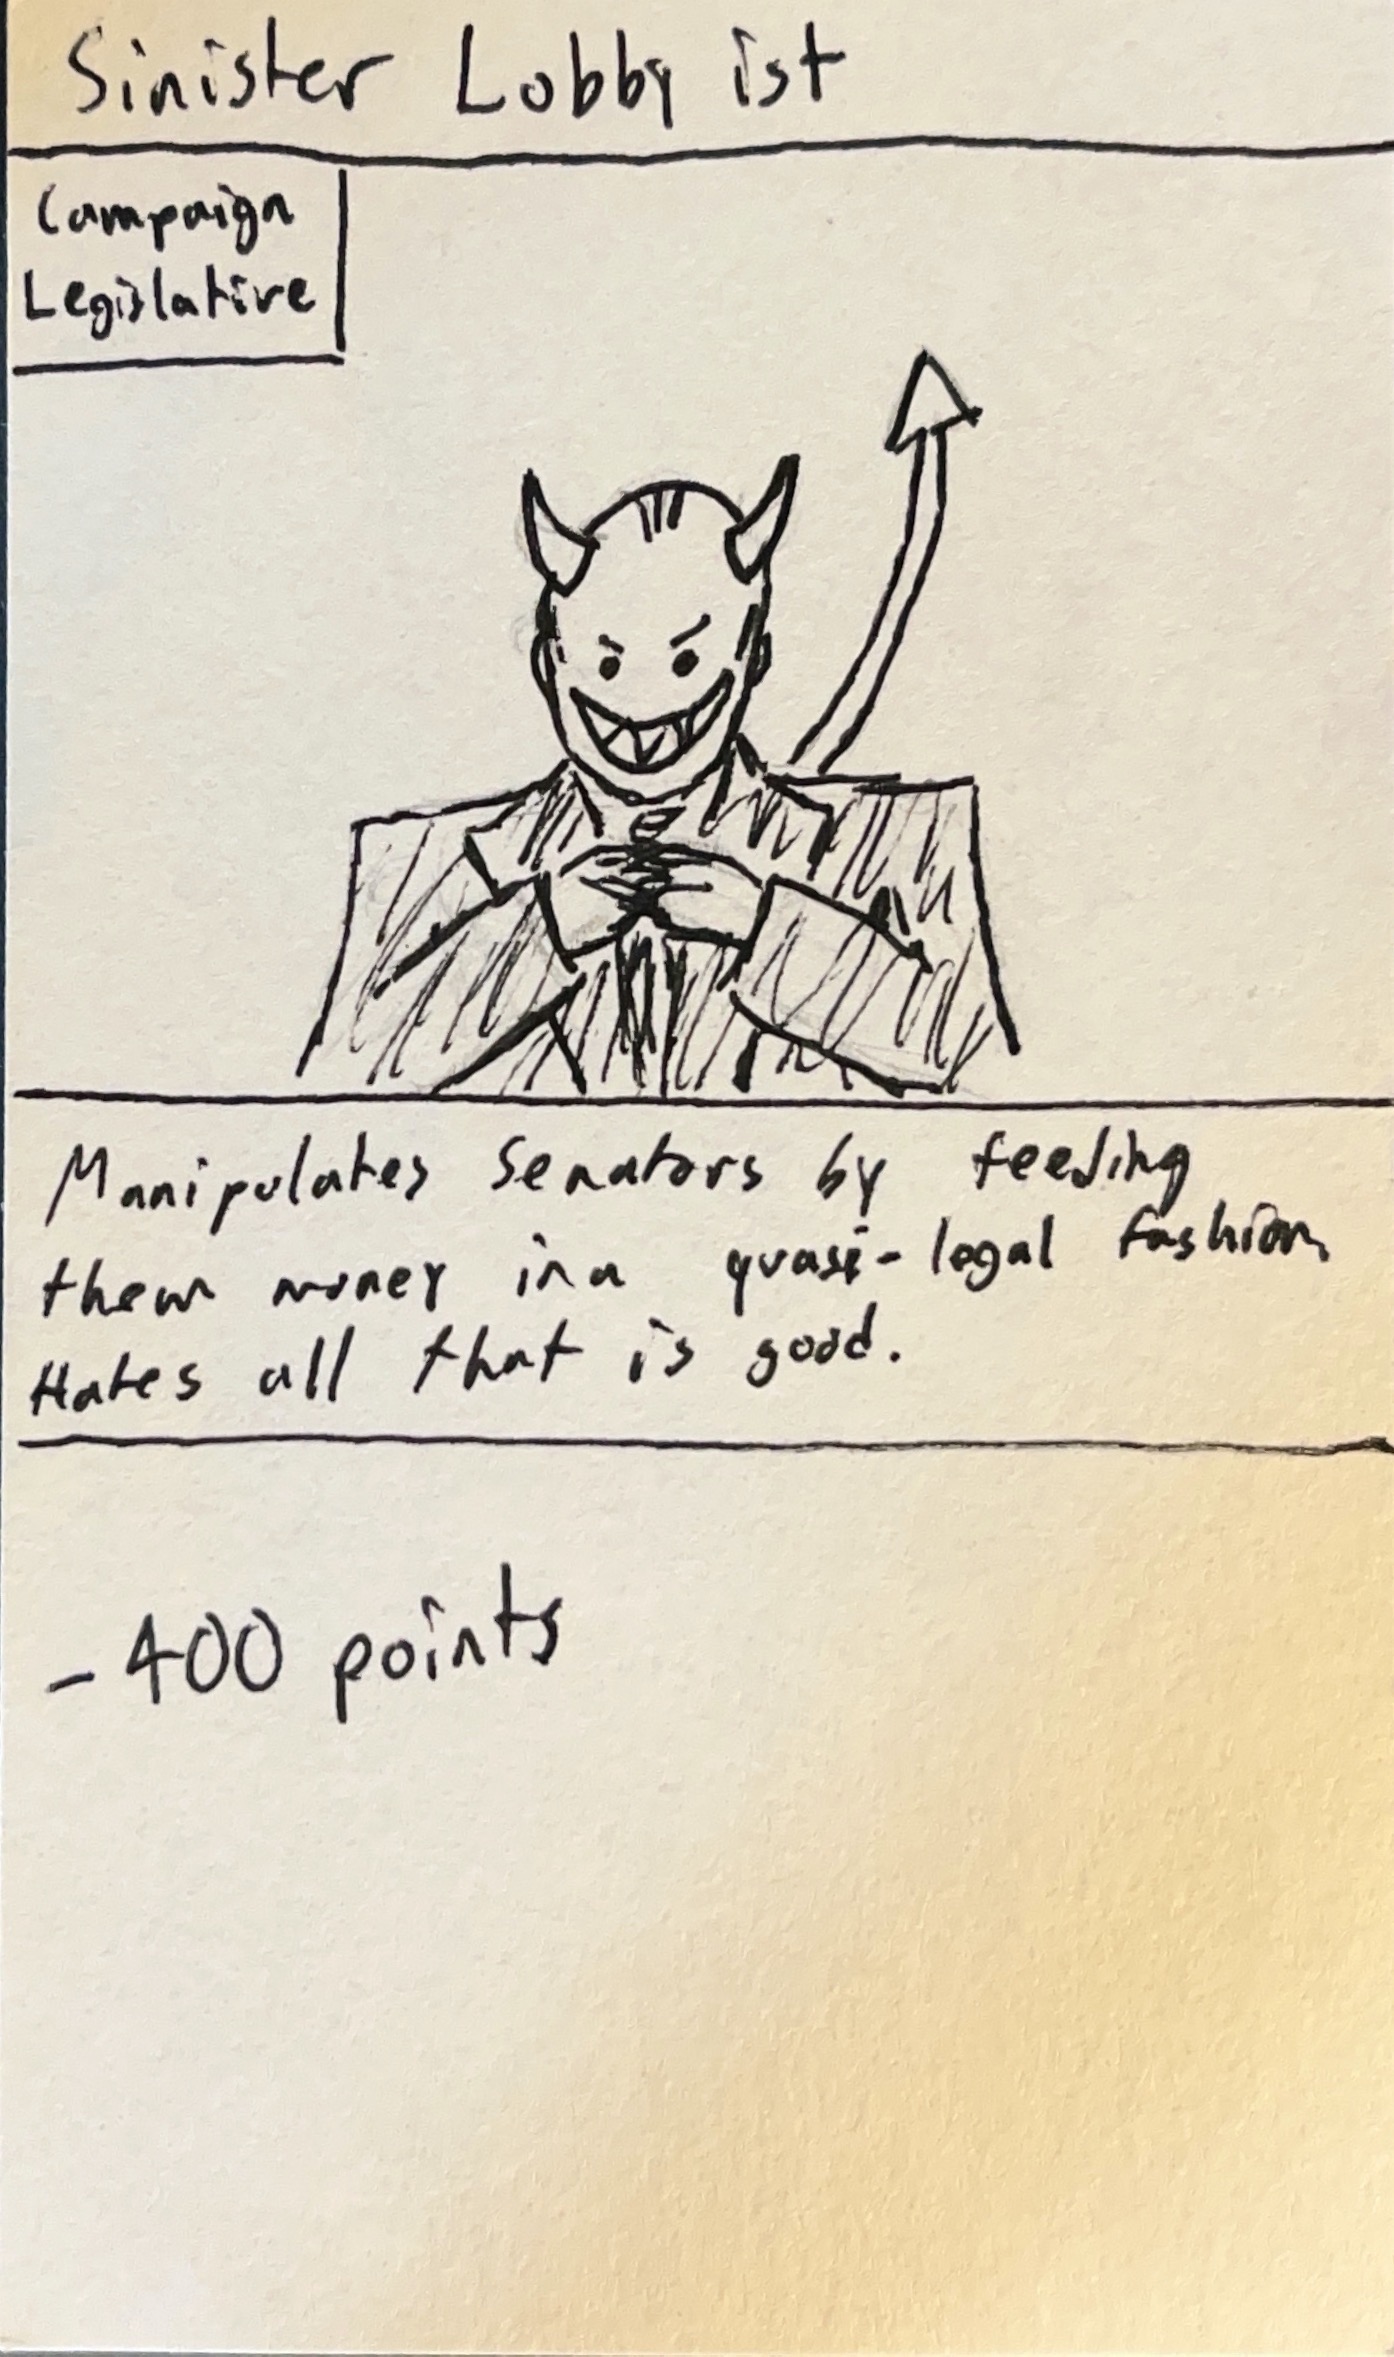 Sinister Lobbyist
Campaign
Legislative
Manipulates Senators by feeding
them money in a quasi-legal fashion.
Hates all that is good.
-400 points